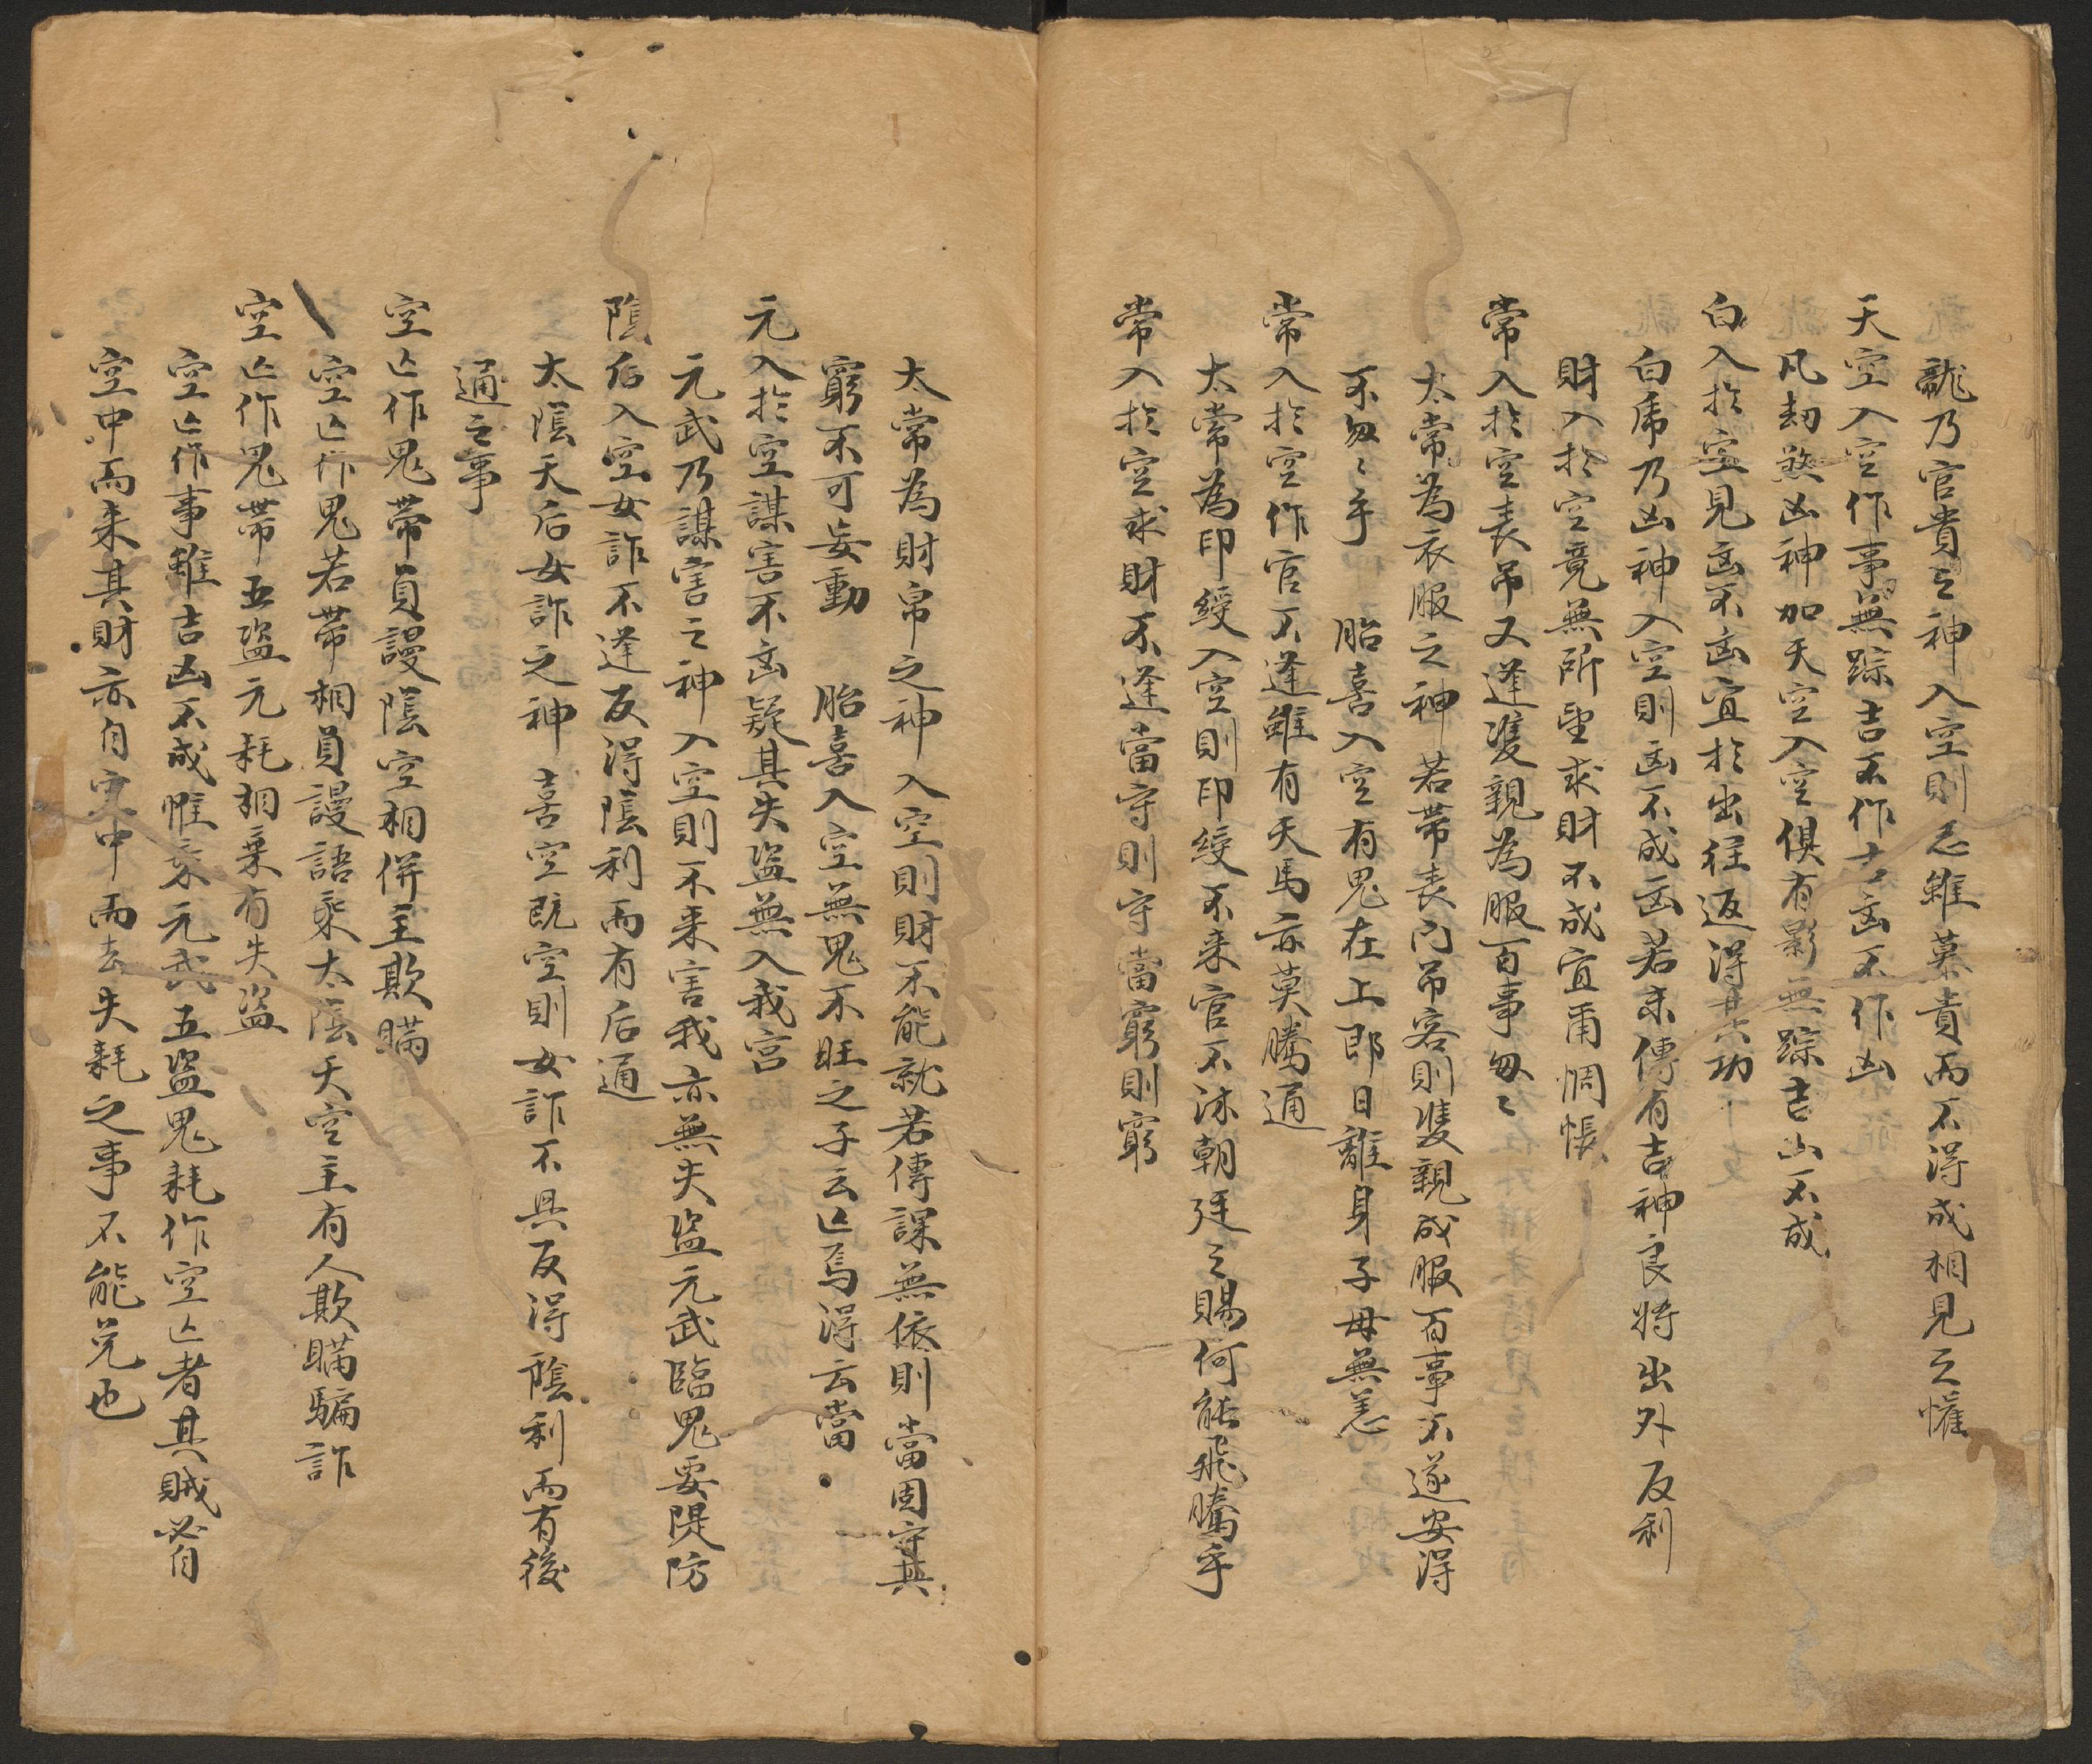 龍乃官貴之神入空則忌雖慕貴而不得成相見之懽
天空入空作事無踪吉不作吉凶不作凶
凡刧煞凶神加天空入空俱有影無踪吉凶不成
白入於空見凶不凶宜於出往返得其功
白虎乃凶神入空則凶不成凶若末傳有吉神良將出外反利
財入於空竟無所望求財不成宜甭惆悵
常入於空丧吊又逢𨾏親為服百事匆〻
太常為衣服之神若帶丧门吊客則𨾏親成服百事不遂安得
不匆〻乎 胎喜入空有鬼在上即日離身子母無恙
常入於空作官不逢雖有天馬亦莫騰通
太常為印綬入空則印綬不来官不沐朝廷之賜何能飛騰乎
常入於空求財不逢當守則守當窮則窮
太常為財帛之神入空則財不能就若傳課無依則當固守其
窮不可妄動 胎喜入空無鬼不旺之子云亾焉得云當
元入於空謀害不凶疑其失盜無入我宫
元武乃謀害之神入空則不来害我亦無失盜元武臨鬼要隄防
陰后入空女詐不逢反得陰利而有后通
太陰天后女詐之神喜空既空則女詐不具反得陰利而有後
通之事
空亾作鬼帶員謾陰空相併主欺瞞
空亾作鬼若帶相員謾語乘太陰天空主有人欺瞞騙詐
空亾作鬼帶五盜元耗相乗有失盜
空亾作事雖吉凶不成惟乘元武五盜鬼耗作空亾者其賊必自
空中而来其財亦自空中而去失耗之事不能免也